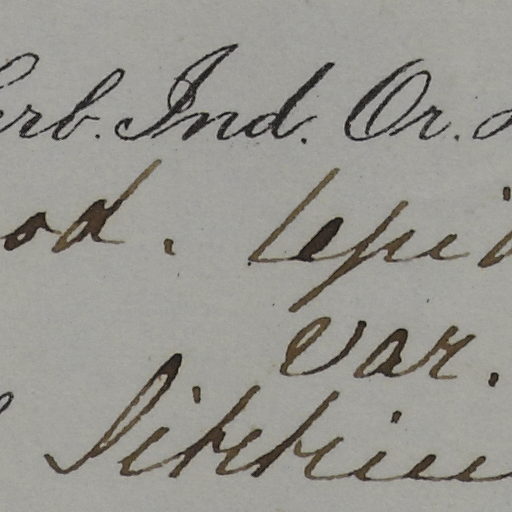 erb. Ind. Or.
od. lepid
var.
Sikkim